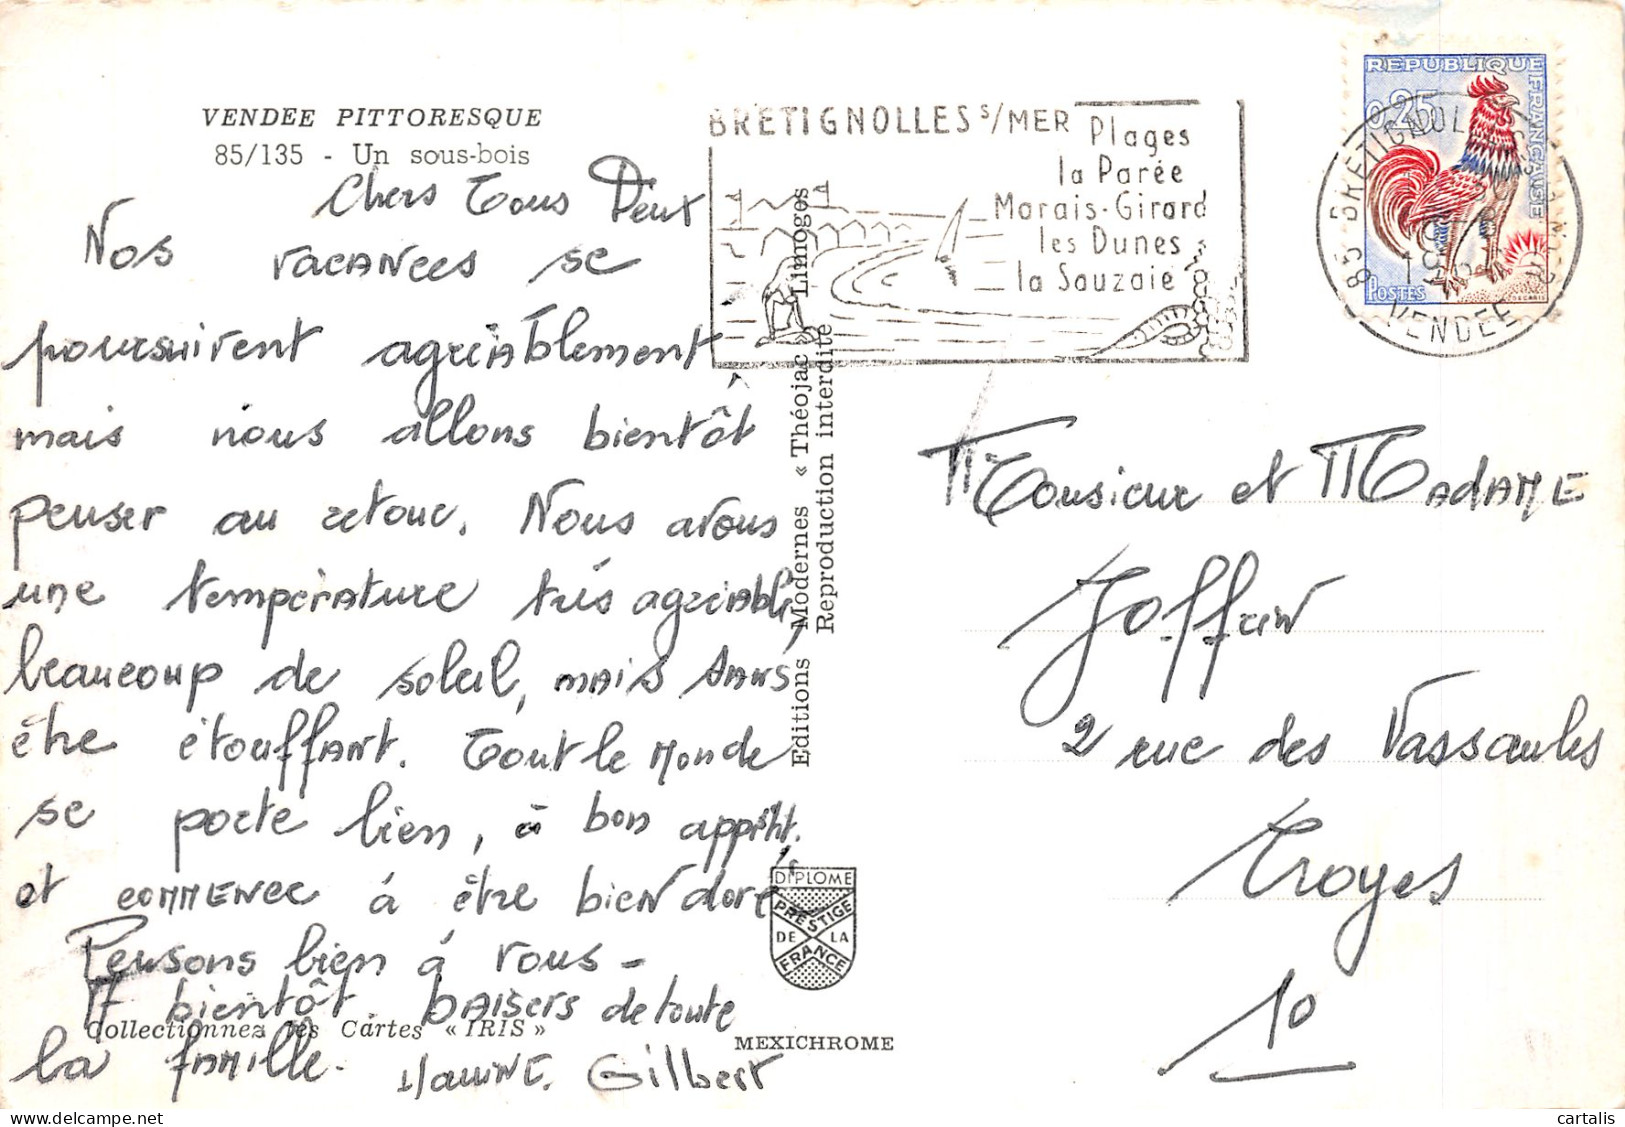 VENDEE PITTORESQUE
85/135 - Un sous-bois
Chers Tous Deux
Nos vacances se
poursuivent agréablement
mais nous allons bientôt
penser au retour. Nous avons
une température très agréable,
beaucoup de soleil, mais sans
être étouffant. Tout le monde
se porte bien, a bon appétit,
et commence à être bien doré
Pensons bien à vous -
A bientôt. baisers de toute
la famille. Gilbert
Collectionnez les Cartes « IRIS »
Editions Modernes « Théojac » Limoges
Reproduction interdite
DIPLOME
PRESTIGE
DE LA
FRANCE
MEXICHROME
BRETIGNOLLES S/MER
Plages
la Parée
Marais-Girard
les Dunes
la Sauzaie
REPUBLIQUE FRANÇAISE
0,25
POSTES
DECARIS
85 BRETIGNOLLES
VENDEE
Monsieur et Madame
Joffrin
2 rue des Vassaules
Troyes
10
cartalis